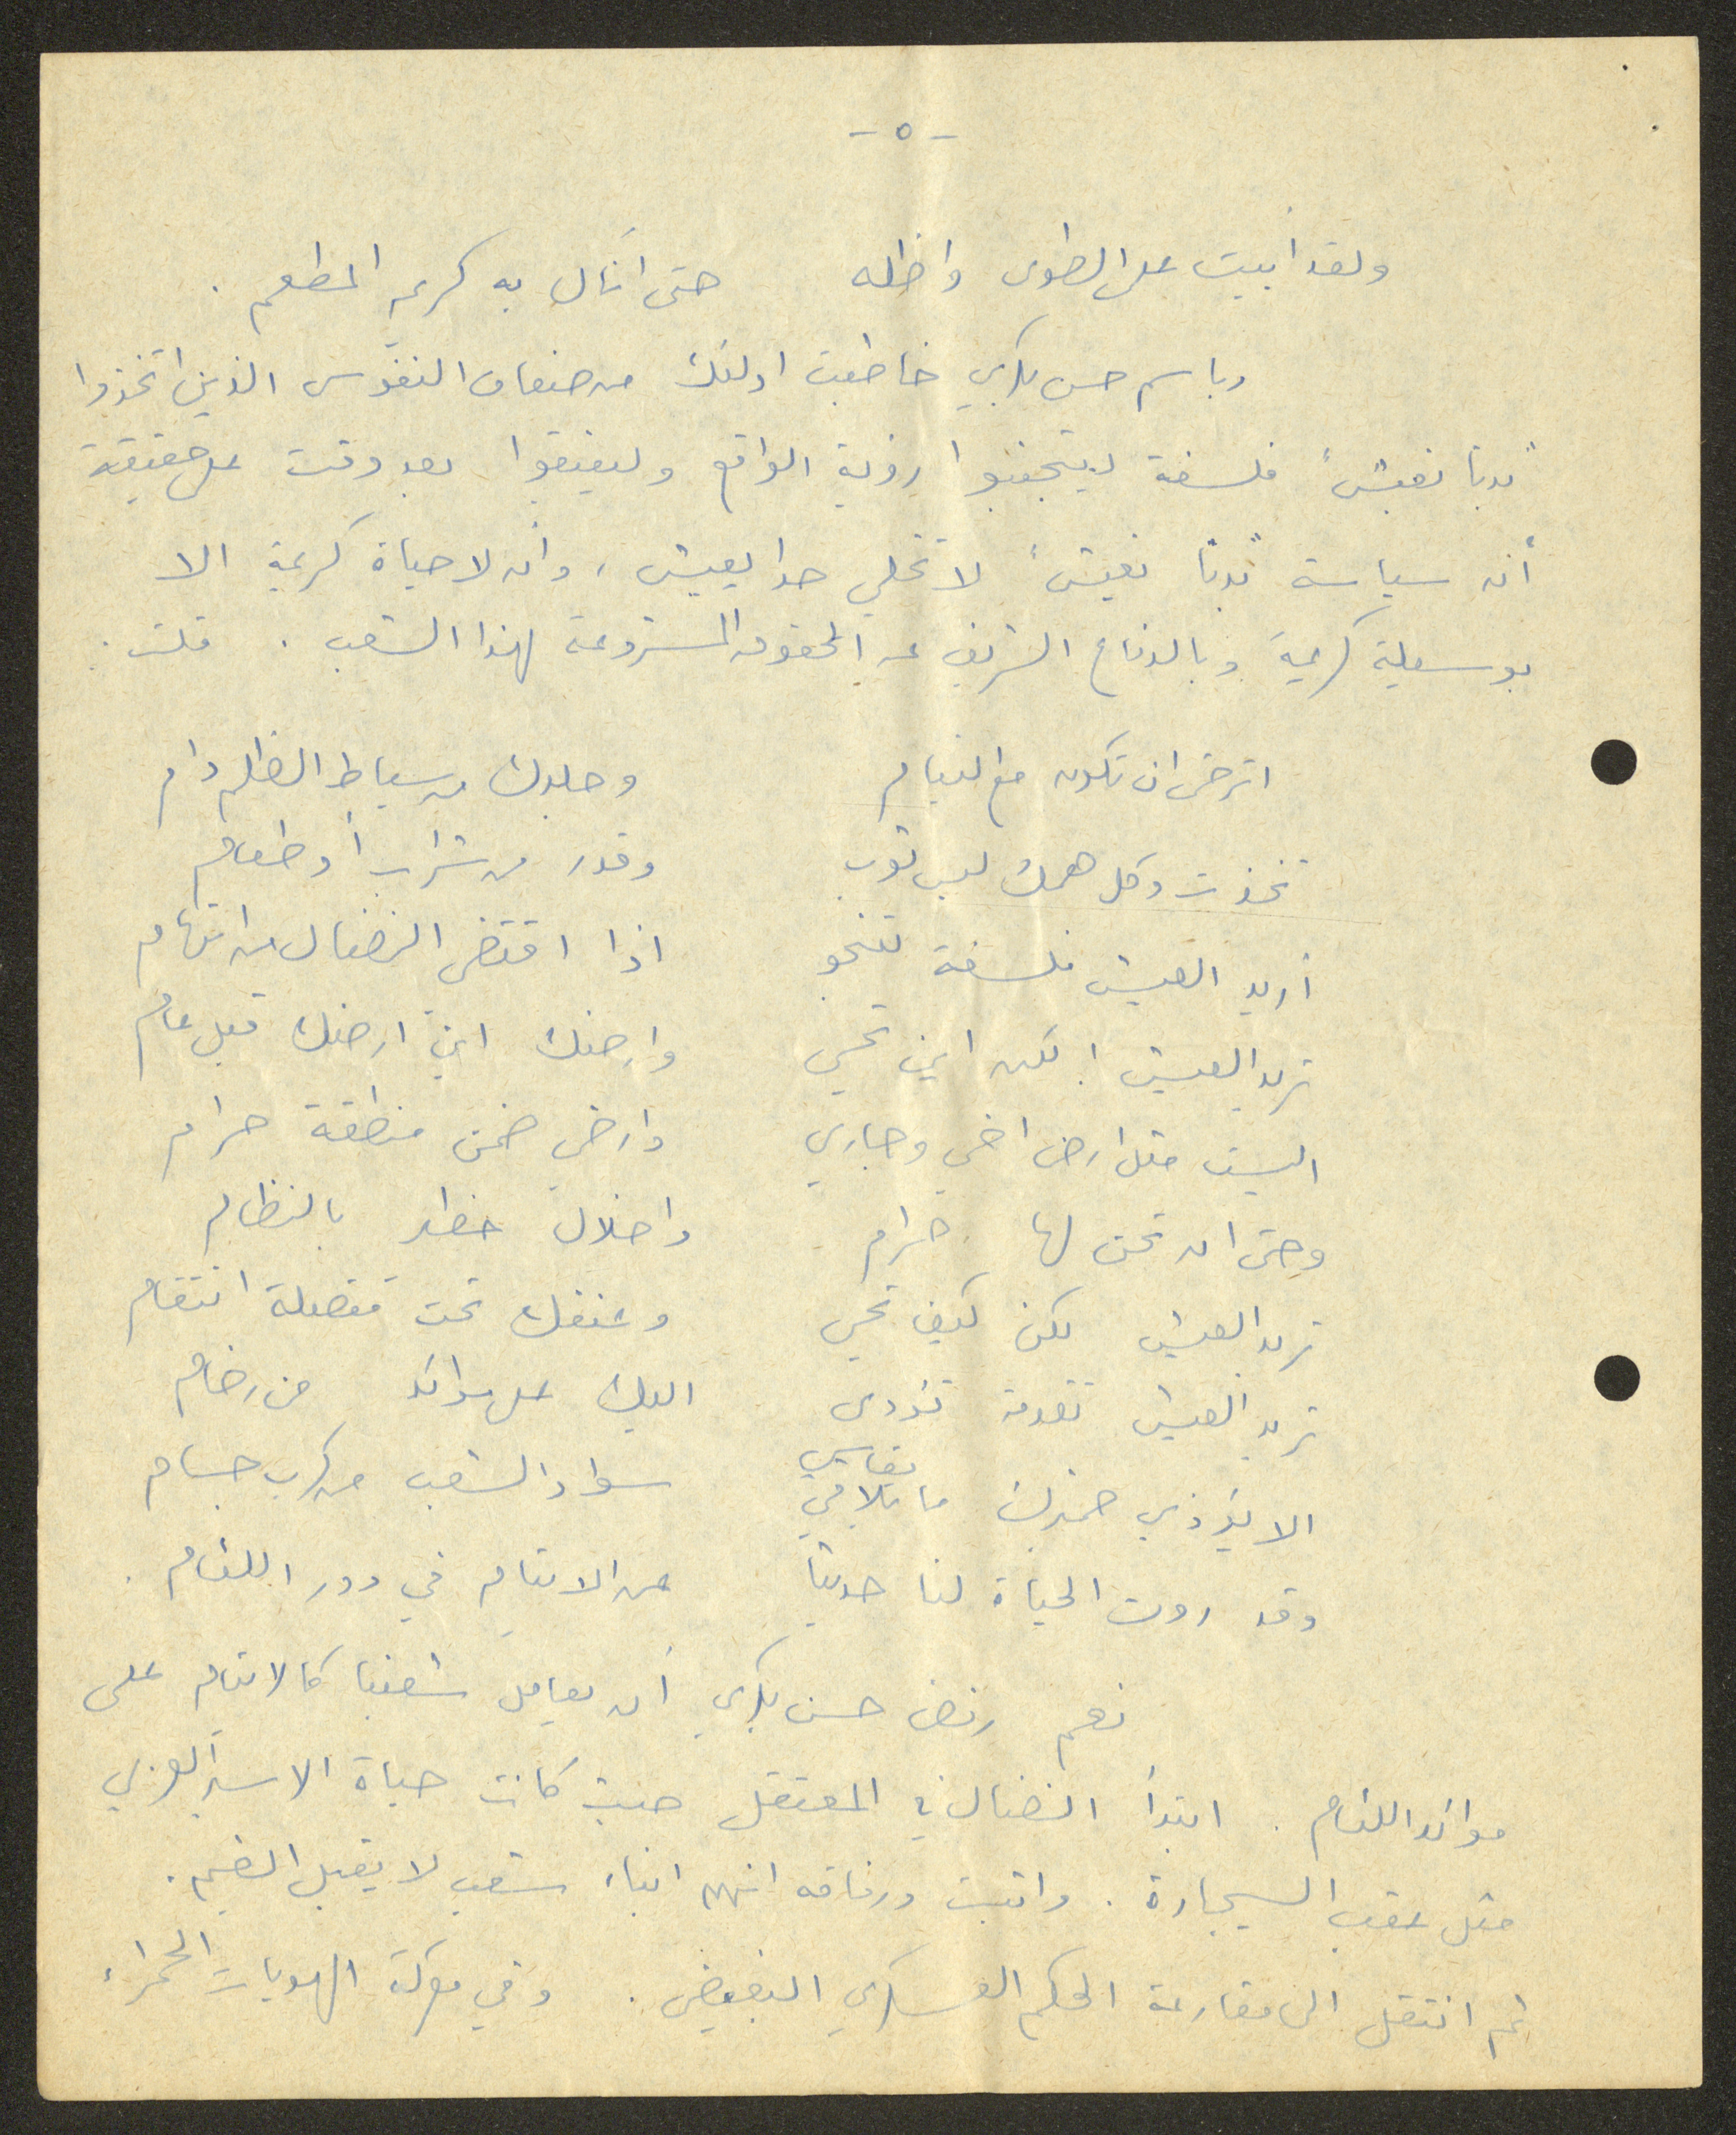 - ٥ -
ولقد أبيت على الطوى واظله حتى انال به كريم المطعم .
وباسم حسن بكري خاطبت اولئك من ضعاف النفوس الذين اتخذوا
"بدنا نعيش" فلسفة ليتجنبوا رؤية الواقع وليفيقوا بعد وقت على حقيقة
أن سياسة "بدنا نعيش" لا تخلي حدا يعيش ، وأن لا حياة كريمة الا
بوسيلة كريمة وبالدفاع الشريف عن الحقوق المشروعة لهذا الشعب . قلت :
اترضى ان تكون مع النيام وجلدك من سياط الظلم دام
تخذت وكل همك لبس ثوب وقدر من شراب أو طعام
أريد العيش فلسفة لتنجو اذا اقتضى النضال من اتهام
تريد العيش ! لكن اين تحيى وارضك اين ارضك قبل عام
اليست مثل ارض اخي وجاري وارضي ضمن منطقة حرام
وحتى ان تحن لها حرام واخلال خطر بالنظام
تريد العيش لكن كيف تحيى وعنقك تحت مقصلة انتقام
تريد العيش تقدمة تؤدى اليك على موائد من رخام
الا يؤذي ضميرك ما يلاقي يقاسي سواد الشعب من كرب جسام
وقد روت الحياة لنا حديثا عن الايتام في دور اللئام .
نعم رفض حسن بكري أن يعامل شعبنا كالايتام على
موائد اللئام . ابتدأ النضال في المعتقل حيث كانت حياة الاسير العربي
مثل عقب السيجارة . واثبت ورفاقه انهم ابناء شعب لا يقبل الضيم .
ثم انتقل الى مقارعة الحكم العسكري البغيض . وفي معركة الهويات الحمراء